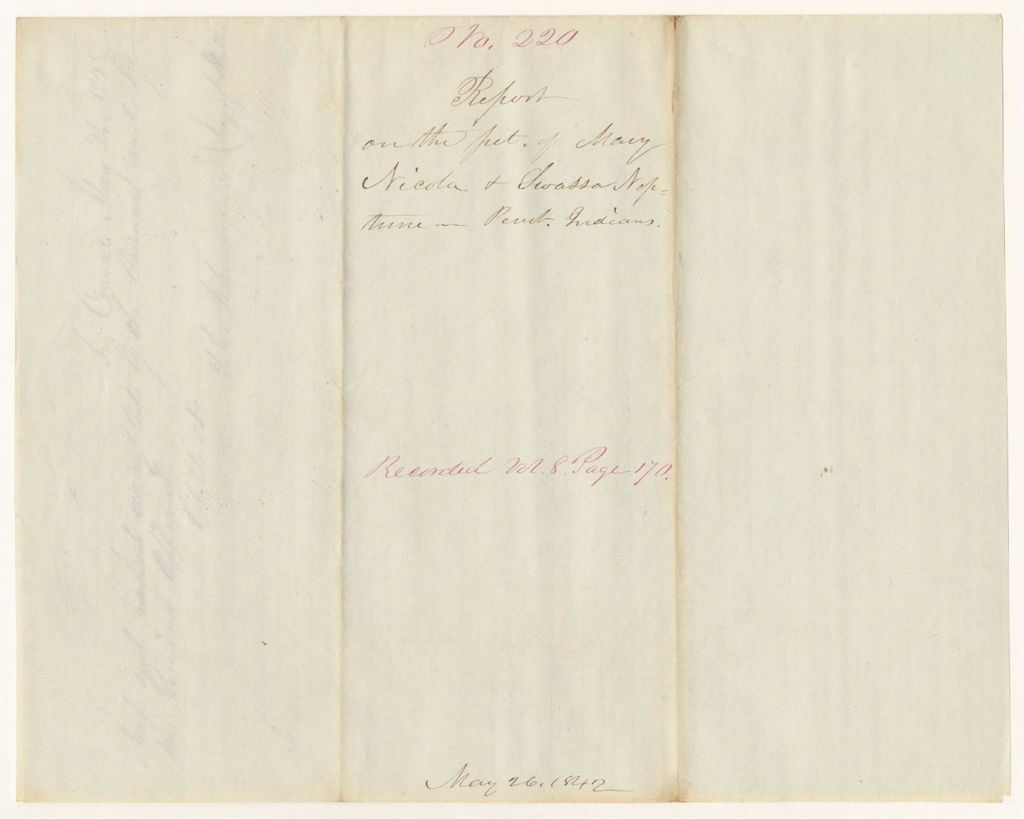 No. 220
Report
on the pet. of Mary
Nicola & Swassa Nep=
tune — Penob. Indians.
Recorded Vol. 8. Page 170.
May 26. 1842